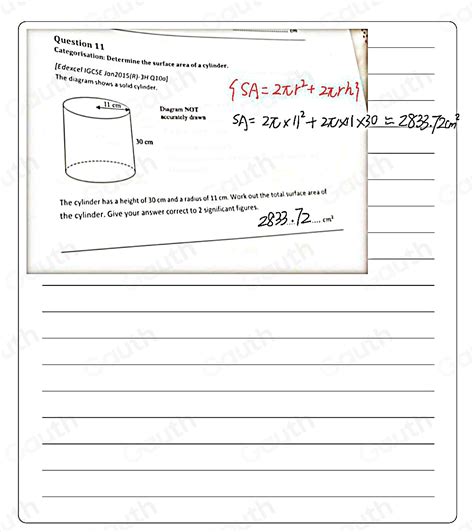 cm
Question 11
Categorisation: Determine the surface area of a cylinder.
[Edexcel IGCSE Jan2015(R)-3H Q10a]
The diagram shows a solid cylinder.
{SA=2πr²+2πrh}
11 cm
Diagram NOT
accurately drawn
SA= 2π×11²+2π×11×30 = 2833.72cm²
30 cm
The cylinder has a height of 30 cm and a radius of 11 cm. Work out the total surface area of
the cylinder. Give your answer correct to 2 significant figures.
2833.72.... cm²
Gauth